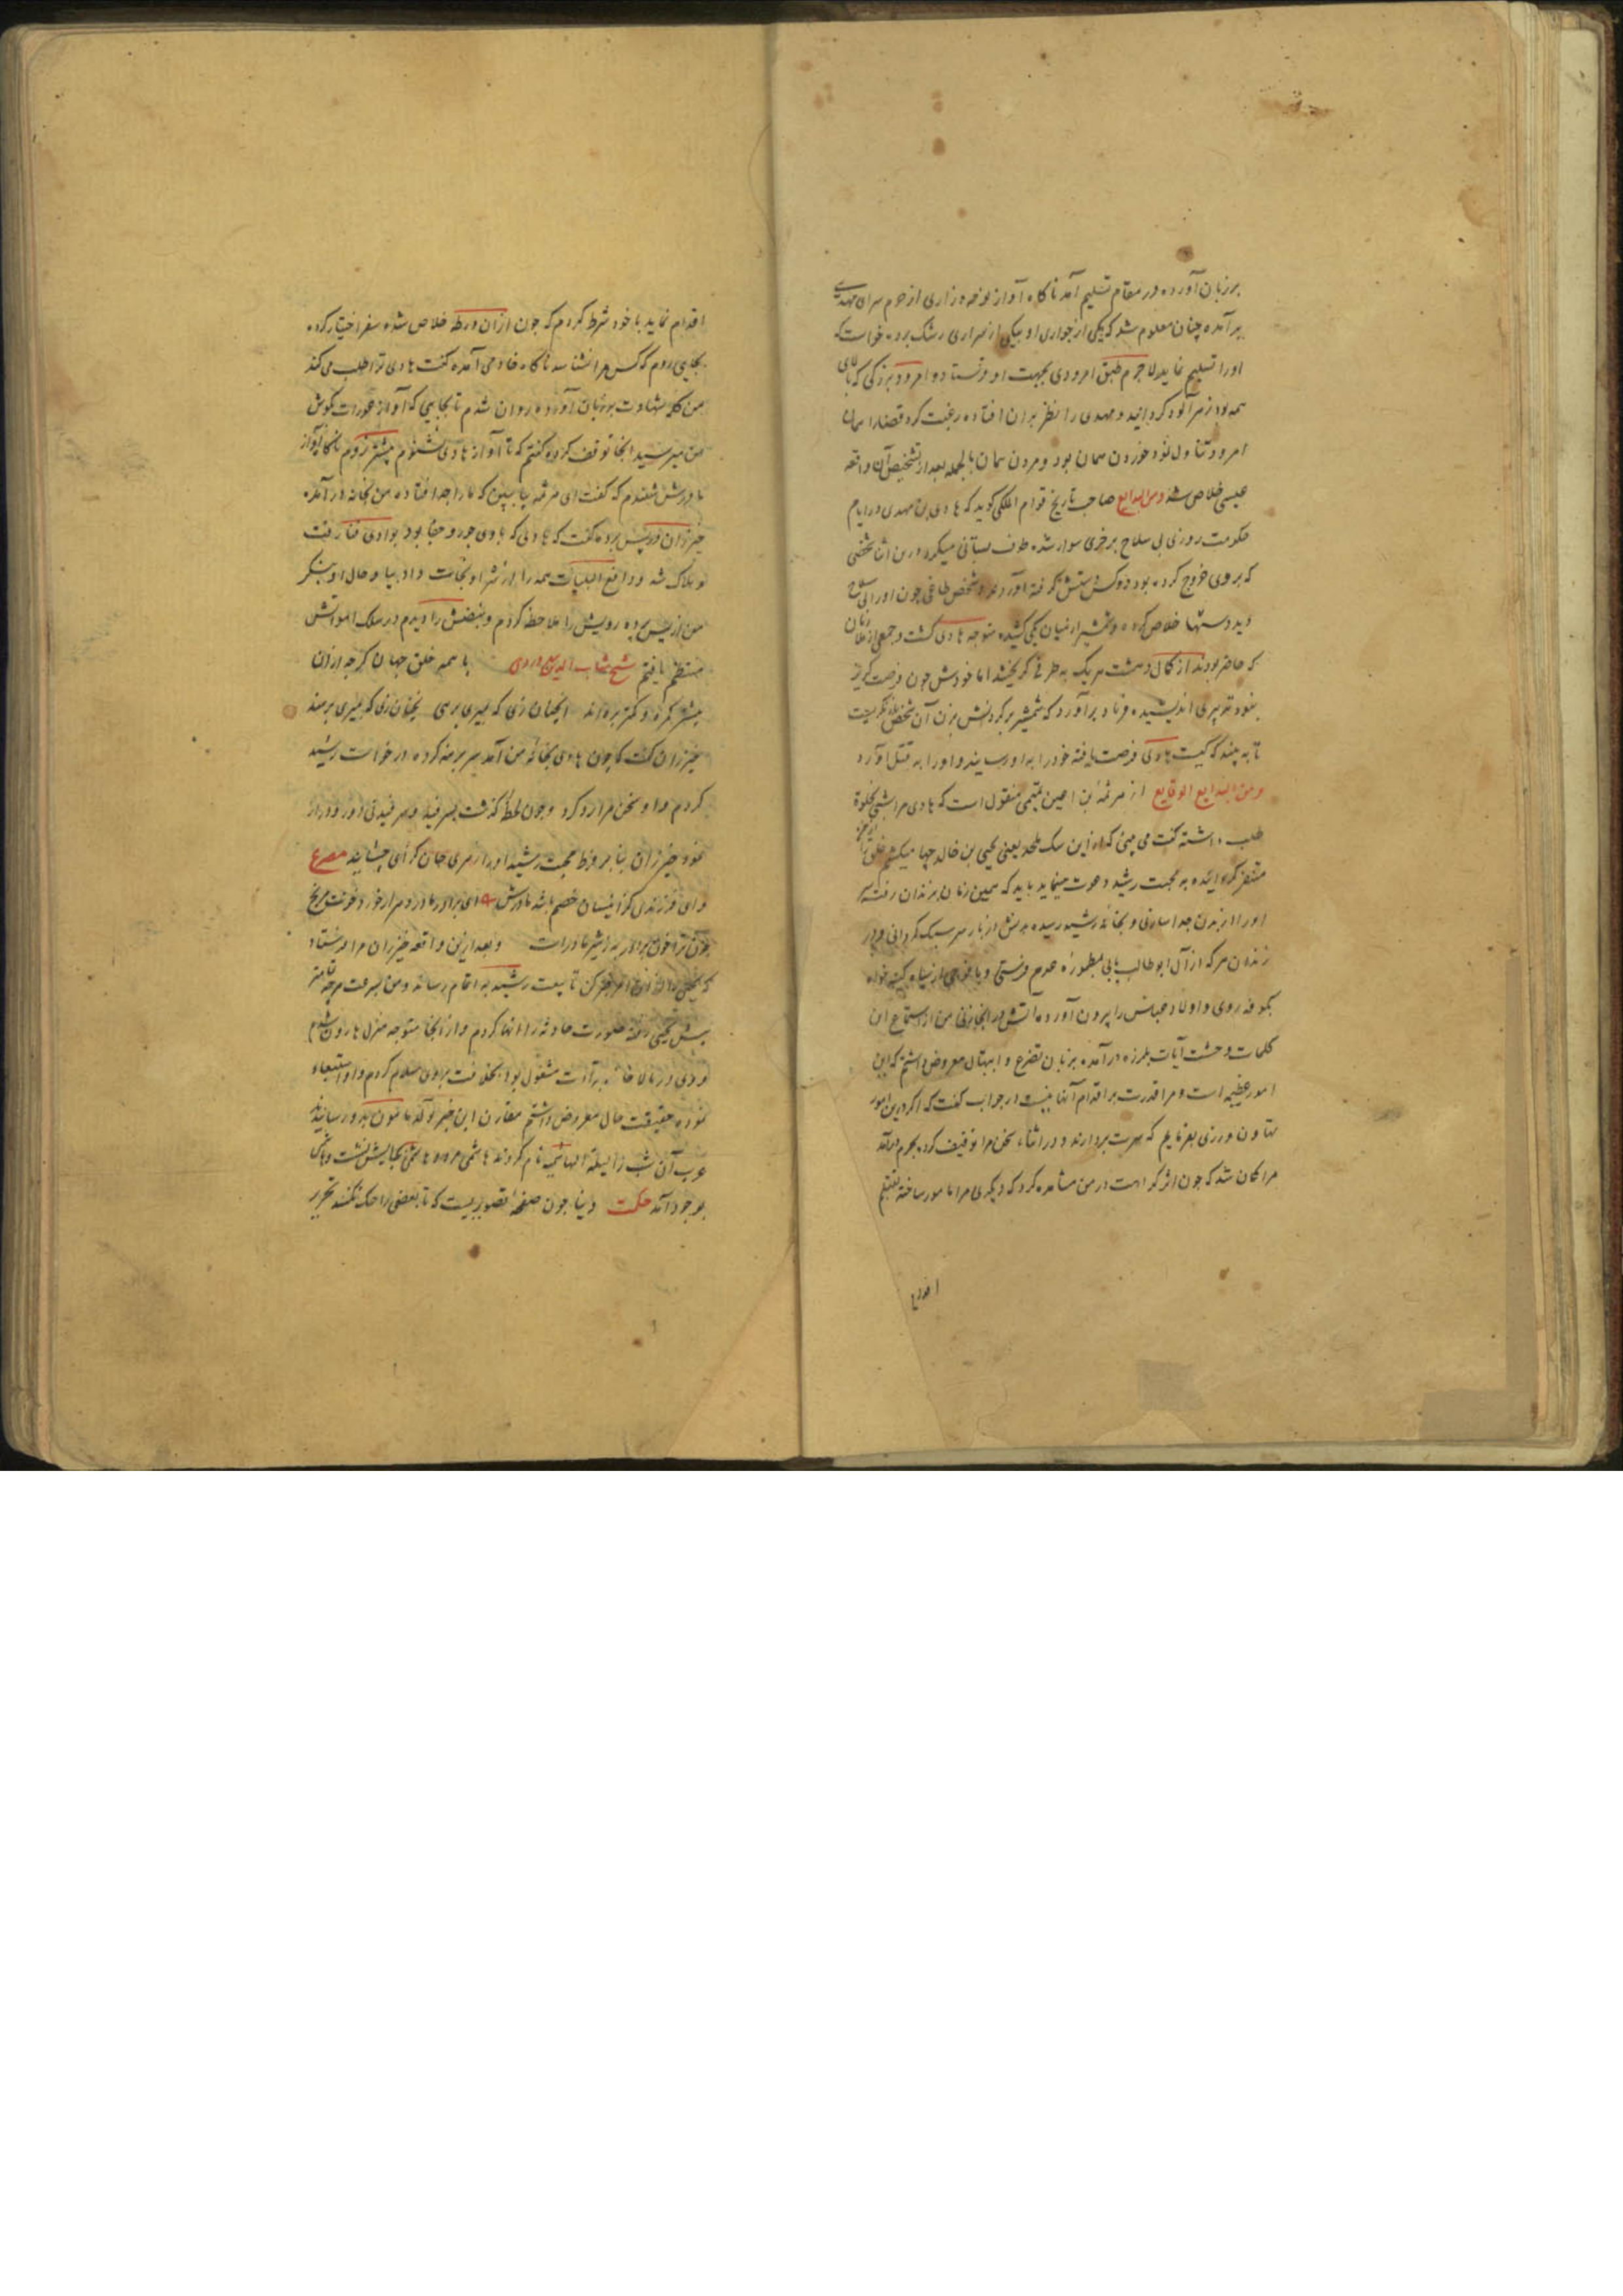 برزبان آورده در مقام تسلیم آمد ناکاه آواز نوحه و زاری از حرم سرای مهدی
برآمده چنان معلوم شد که یکی از جواری او بیکی از سراری رشک برده خواست که
اورا تسلیم نماید لاجرم طبق امرودی بجهت او فرستاد و امرود بزرکی که بالای
همه بود زهرآلود کردانید و مهدی را نظر بران افتاده رغبت کرد قضا را همان
امرود تناول نمود خوردن همان بود و مردن همان بالجمله بعد از تشخیص آن واقعه
عیسی خلاص شد ومن البدایع صاحب تاریخ قوام الملکی کوید که هادی بن مهدی در ایام
حکومت روزی بی سلاح برخری سوار شده طوف بستانی میکرد درین اثنا شخصی
که بروی خروج کرده بود دو کس دستش کرفته آوردند و شخص طاغی چون اورا بی سلاح
دید دستها خلاص کرده و شمشیر از میان یکی کشیده متوجه هادی کشت و جمعی از غلامان
که حاضر بودند از کمال دهشت هر یک به طرفی کریختند اما خودش چون فرصت کریز
نبود تدبیری اندیشیده فریاد برآورد که شمشیر بر کردنش بزن آن شخص باز نکریست
تا به بیند که کیست هادی فرصت یافته خود را به او رسانید و اورا به قتل آورد
ومن البدایع الوقایع از هرثمه بن اعین تمیمی منقول است که هادی مرا شبی بخلوة
طلب داشته کفت می بینی که از این سک ملحد یعنی یحیی بن خالد چها میکشم خلق را از من
متنفر کردانیده به محبت رشید دعوت مینماید باید که همین زمان بزندان رفته سر
اورا از بدن جدا سازی و بخانه رشید رسیده بدنش از بار سر سبک کردانی و از
زندان هر که از آل ابوطالب یابی بمطموره عدم فرستی و با فوجی از سپاه کینه خواه
بکوفه روی و اولاد عباس را بیرون آورده آتش در انجا زنی من از استماع این
کلمات وحشت آیات بلرزه درآمده بزبان تضرع و ابتهال معروض داشتم که این
امور عظیمه است و مرا قدرت بر اقدام آنها نیست در جواب کفت که اکر درین امور
تهاون ورزی بفرمایم که سرت بردارند و در اثناء سخن مرا توقیف کرده بحرم درآمد
مرا کمان شد که چون اثر کراهت در من مشاهده کرد که دیکری مرا مامور ساخته بقتلم
اقدام
اقدام نماید با خود شرط کردم که چون ازان ورطه خلاص شده سفر اختیار کرده
بجایی روم که کس مرا نشناسد ناکاه خادمی آمده کفت هادی ترا طلب می کند
من کلمه شهادت برزبان آورده روان شدم تا بجایی که آواز عورات بکوش
من میرسید انجا توقف کرده کفتم که تا آواز هادی نشنوم پیشتر نروم ناکاه آواز
مادرش شنیدم که کفت ای هرثمه بیا ببین که مارا چه افتاده من بخانه درآمده
خیزران در پس پرده کفت که هادی که بادی جور و جفا بود بوادی فنا رفت
و هلاک شد و دافع البلیات همه را از شر او نجات داد بیا و حال او بنکر
من از پس پرده رویش را ملاحظه کردم و نبضش را دیدم در سلک امواتش
منتظم یافتم شیخ شهاب الدین سهروردی با همه خلق جهان کرچه ازان
بیشتر کمره و کمتر برهاند انچنان زی که بمیری برهی نچنان زی که بمیری برهند
خیزران کفت که چون هادی بخانه من آمد سر برهنه کرده درخواست رشید
کردم و او سخن مرا رد کرد و چون لحظه کذشت بسرفید و سرفیدنی دور و دراز
نمود خیزران بنا بر فرط محبت رشید اورا زهری جان کزای چشانید مصرع
وای فرزندی کز انسان خصم باشد مادرش ای برادر مادر دهر ار خورد خونت مرنج
چون ترا خون برادر به ز شیر مادرست وبعد ازین واقعه خیزران مرا فرستاد
که یحیی را از زندان بیرون کن تا بیعت رشید به اتمام رساند ومن بسرعت هرچه تمامتر
پیش یحیی رفته صورت حادثه را انها کردم و از انجا متوجه منزل هارون شدم
و وی در بالا خانه بقرآات مشغول بود بخلافت بروی سلام کردم و او استبعاد
نموده حقیقت حال معروض داشتم مقارن این خبر تولد مامون بدو رسانیدند
عرب آن شب را لیلة الهاشمیه نام کردند هاشمی مرد و هاشمی بجایش نشست و هاشمی
بوجود آمد حکمت دنیا چون صفحه تصویریست که تا بعضی را حک نکنند تحریر